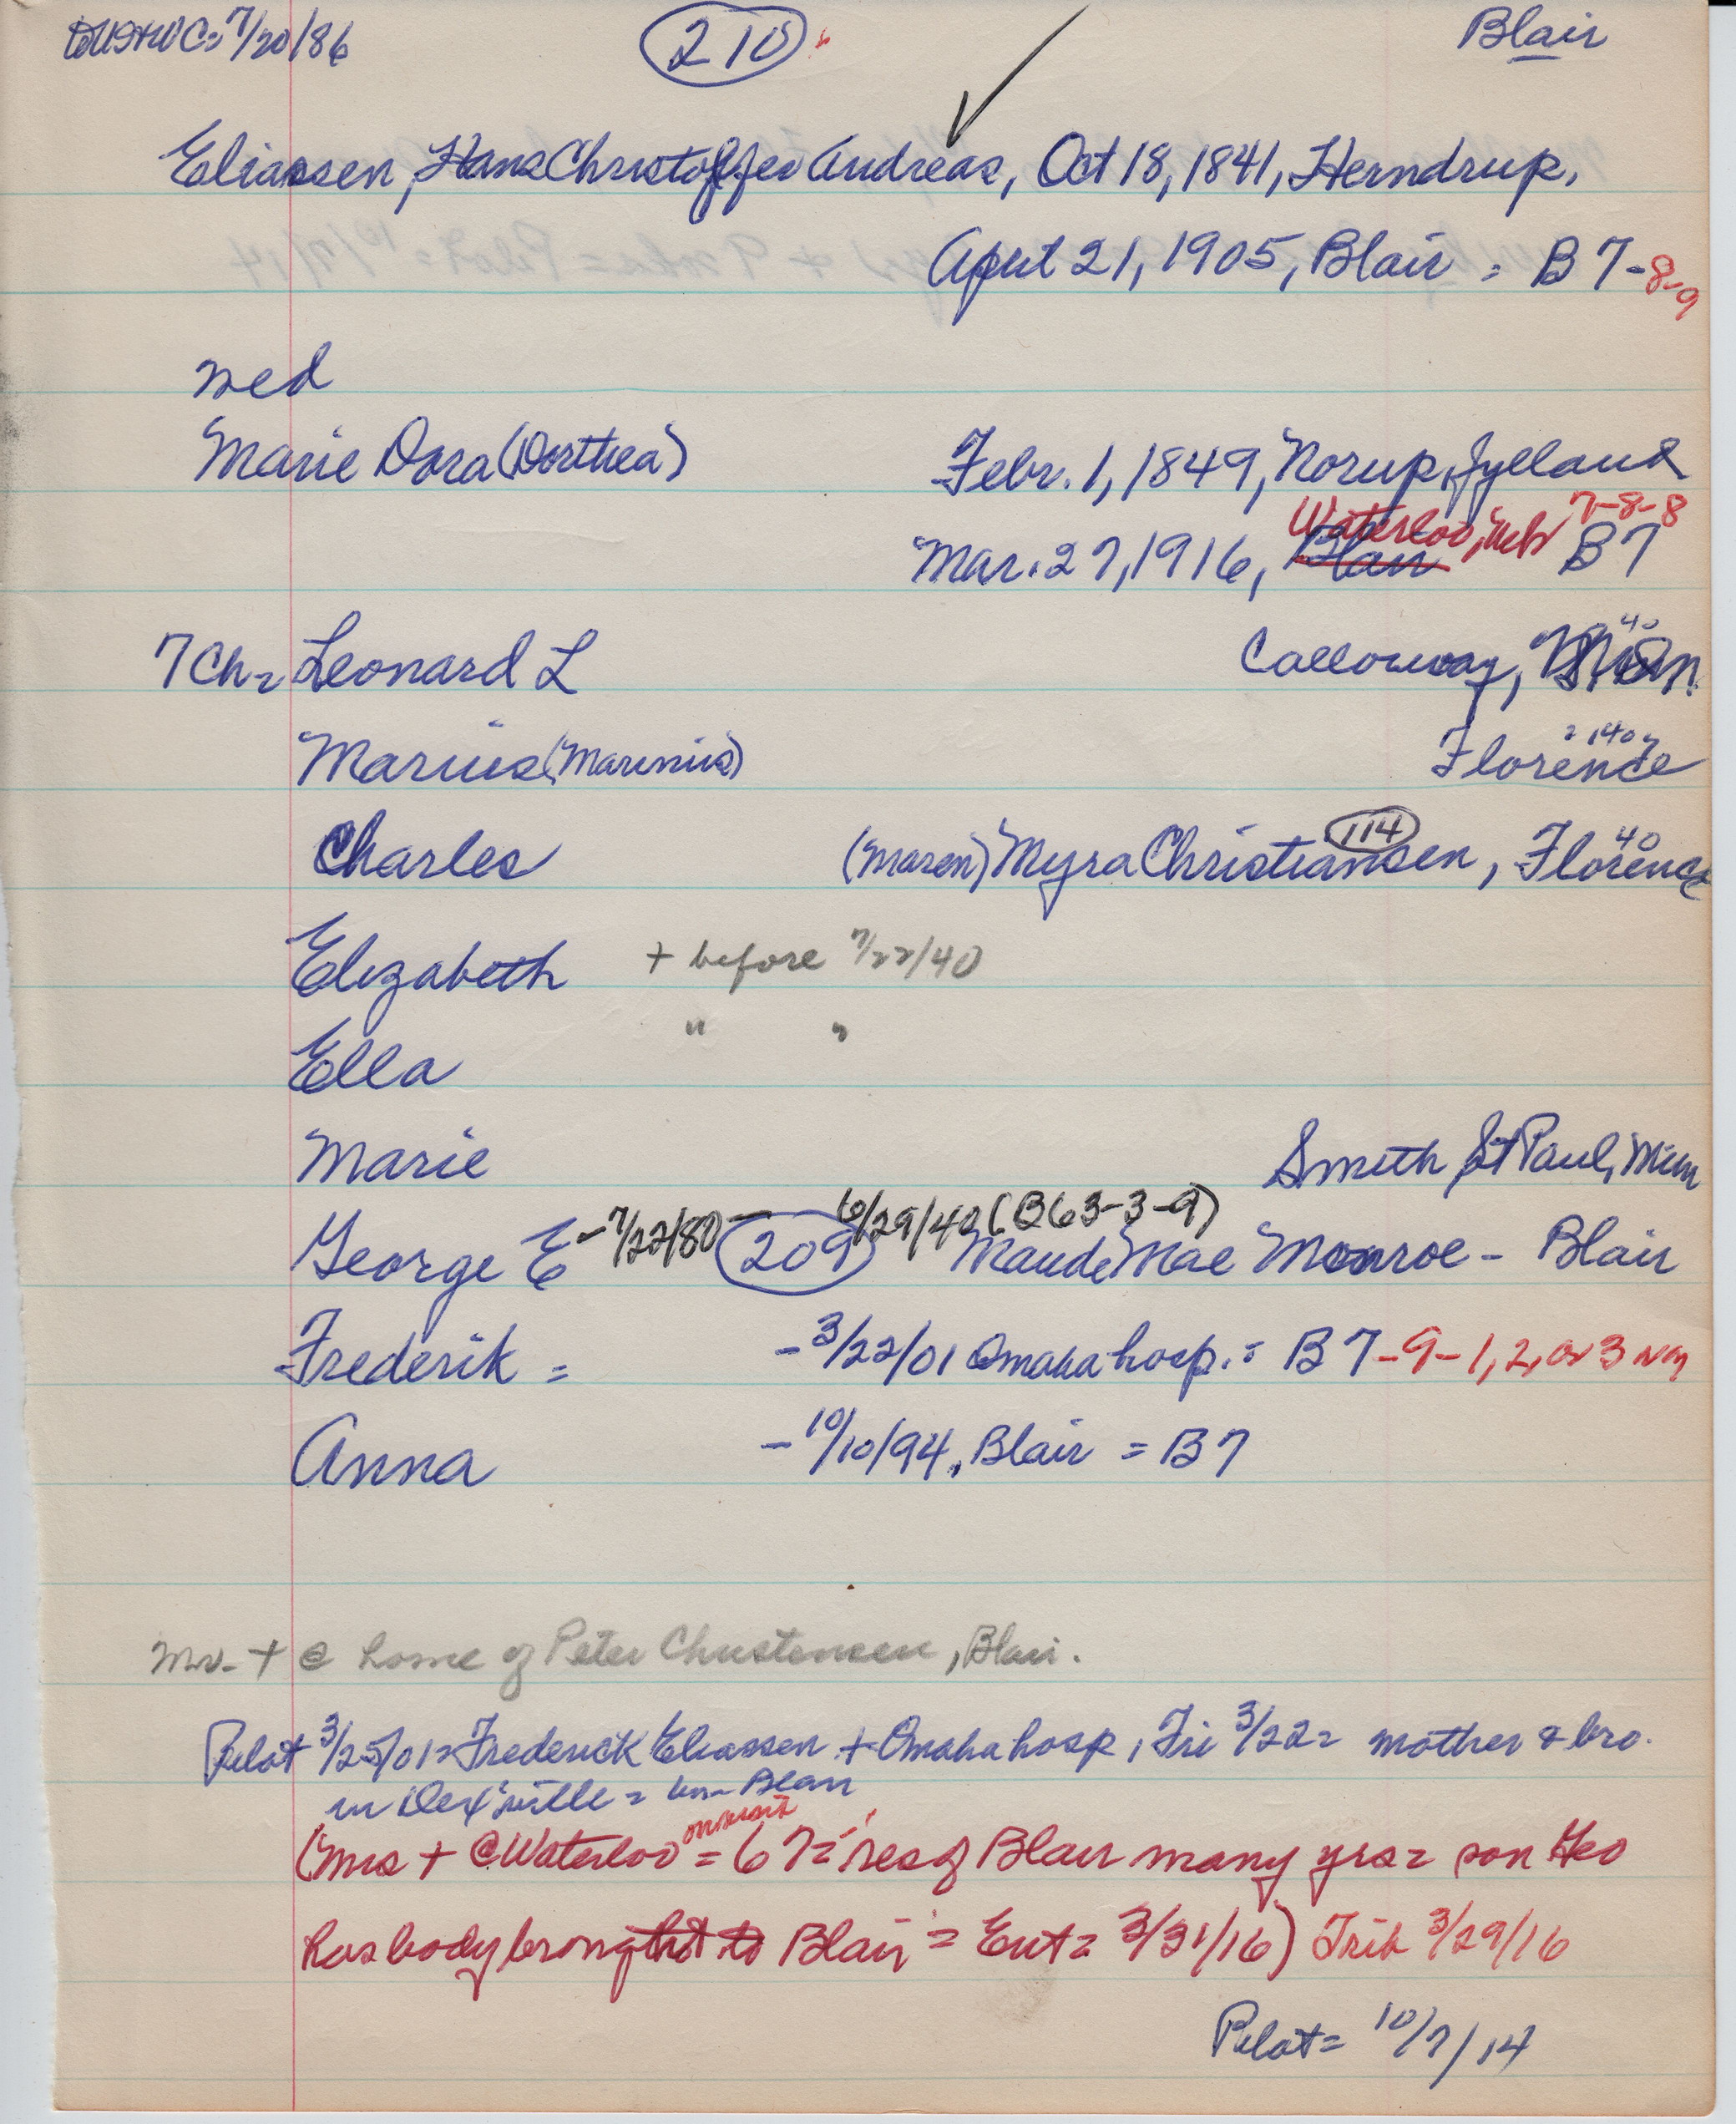 C: 7/20/86 210 Blair
Eliassen, Hans Christoffer Andreas, Oct 18, 1841, Herndrup,
April 21, 1905, Blair = B 7-8-9
med
Marie Dora (Dorthea) Febr. 1, 1849, Norup, Jylland
Waterloo, Neb 7-8-8
Mar. 27, 1916, Blair B7
7 Ch = Leonard L Calloway, '40
Marius (Marinus) Florence '40
Charles (Maren) Myra Christiansen, 114 Florence 40
Elizabeth + before 7/22/40
Ella " "
Marie Smith, St Paul, Minn
George E - 7/22/80 - 6/29/40 (B63-3-9) 209 Maude Mae Monroe - Blair
Frederik = - 3/22/01 Omaha hosp. = B 7-9-1, 2, or 3
Anna - 10/10/94, Blair = B7
Mr. + @ home of Peter Christensen, Blair.
Pilot 3/25/01 = Frederick Eliassen + Omaha hosp, Fri 3/22 = mother & bro.
in = Blair
(Mrs + @ Waterloo on visit = 67 = res of Blair many yrs = son Geo
has body brought to Blair = Ent = 3/31/16) Trib 3/29/16
Pilot = 10/7/14